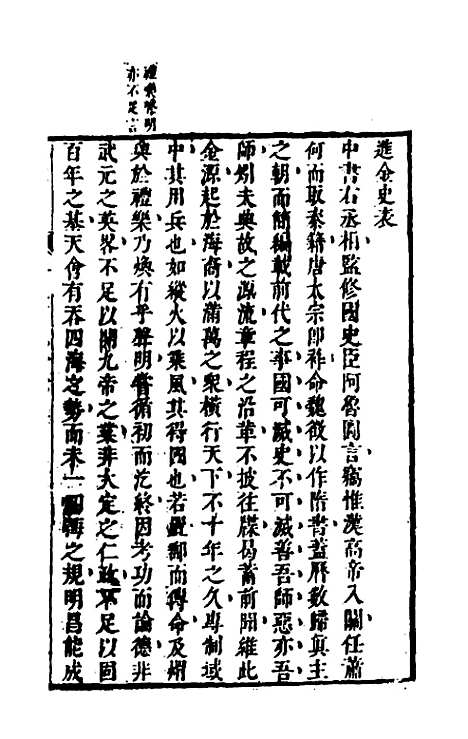 進金史表
中書右丞相監修國史臣阿魯圖言竊惟漢高帝入關任蕭
何而取秦籍唐太宗即祚命魏徵以作隋書蓋曆數歸真主
之朝而簡編載前代之事國可滅史不可滅善吾師惡亦吾
師矧夫典故之源流章程之沿革不披往牒曷蓄前聞維此
金源起於海裔以滿萬之衆橫行天下不十年之久專制域
中其用兵也如縱火以乘風其得國也若置郵而傳命及煟
興於禮樂乃煥有乎聲明嘗循初而迄終因考功而論德非
武元之英畧不足以開九帝之業非大定之仁政不足以固
百年之基天會有吞四海之勢而未一四海之規明昌能成
禮樂聲明
亦不足言